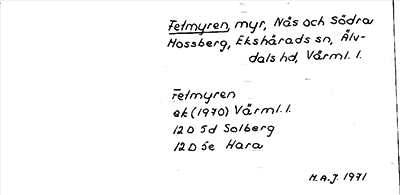 Fetmyren, myr, Nås och Södra
Mossberg, Ekshärads sn, Älv-
dals hd, Värml. l.
Fetmyren
ek (1970) Värml. l.
12 D 5d Solberg
12 D 5e Hara
M.A.J. 1971